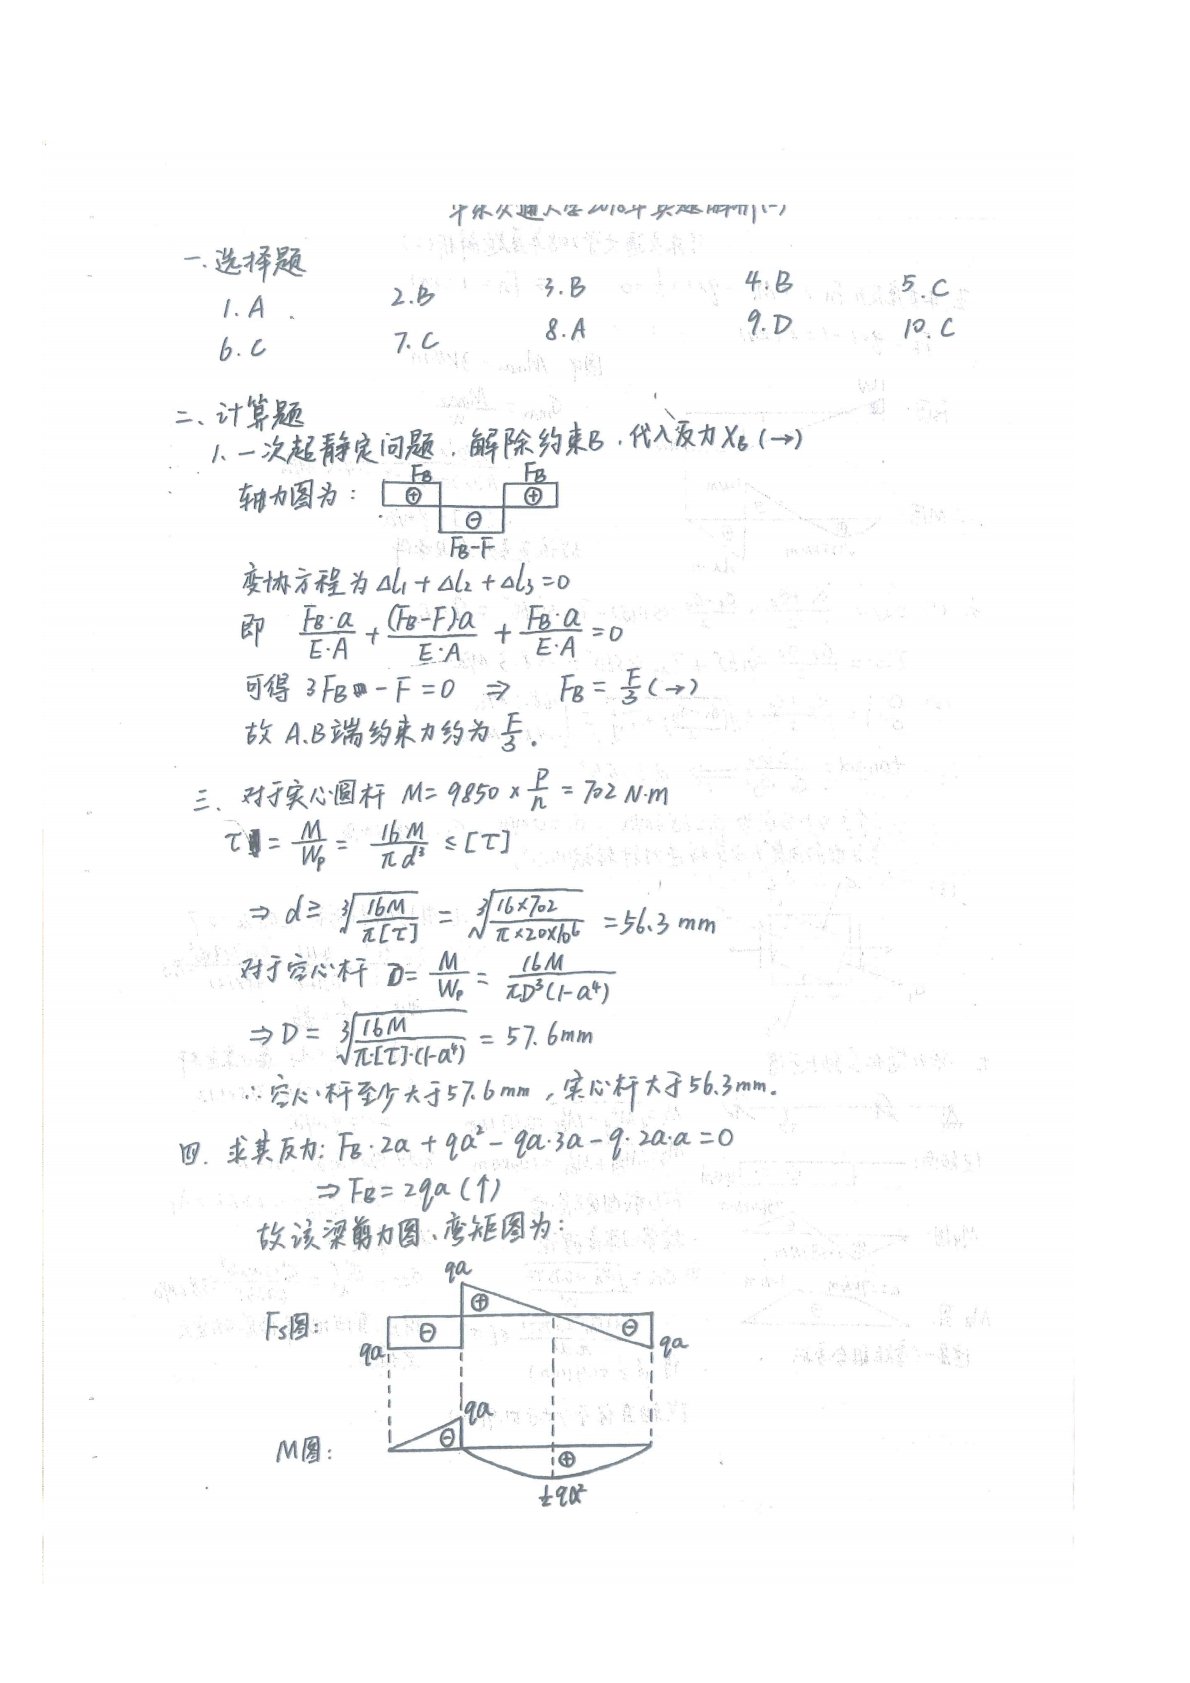 华东交通大学2018年真题解析(一)
一.选择题
1.A 2.B 3.B 4.B 5.C
6.C 7.C 8.A 9.D 10.C
二、计算题
1、一次超静定问题,解除约束B,代入反力X_B(→)
F_B F_B
轴力图为: ⊕ ⊖ ⊕
F_B-F
变协方程为 Δl₁+Δl₂+Δl₃=0
即 F_B·a/E·A + (F_B-F)·a/E·A + F_B·a/E·A = 0
可得 3F_B - F = 0 ⇒ F_B = F/3 (→)
故 A.B端约束力约为 F/3.
三、对于实心圆杆 M = 9850 × P/n = 702 N·m
τ = M/W_p = 16M/πd³ ≤ [τ]
⇒ d ≥ ∛(16M/π[τ]) = ∛(16×702/π×20×10⁶) = 56.3 mm
对于空心杆 D = M/W_p = 16M/πD³(1-a⁴)
⇒ D = ∛(16M/π·[τ]·(1-a⁴)) = 57.6mm
∴空心杆至少大于57.6mm,实心杆大于56.3mm.
四.求其反力: F_B·2a + qa² - qa·3a - q·2a·a = 0
⇒ F_B = 2qa (↑)
故该梁剪力图、弯矩图为:
qa
Fs图: ⊖ ⊕ ⊖
qa qa
qa
M图: ⊖ ⊕
½qa²